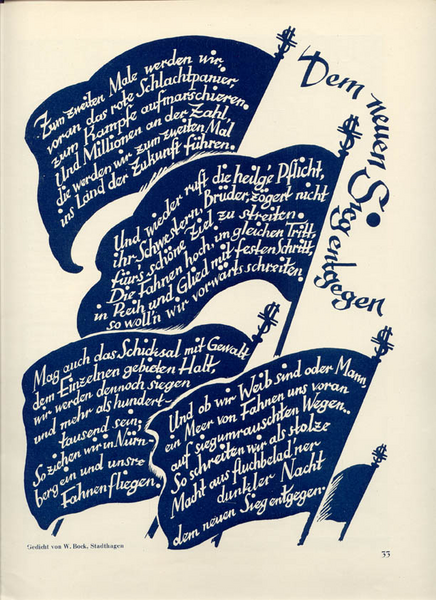 Dem neuen Sieg entgegen
Zum zweiten Male werden wir,
voran das rote Schlachtpanier,
zum Kampfe aufmarschieren.
Und Millionen an der Zahl,
die werden wir zum zweiten Mal
ins Land der Zukunft führen.
Und wieder ruft die heilge Pflicht,
ihr Schwestern, Brüder, zögert nicht
für's schöne Ziel zu streiten.
Die Fahnen hoch, im gleichen Tritt,
in Reih und Glied mit festen Schritt,
so woll'n wir vorwärts schreiten
Mag auch das Schicksal mit Gewalt
dem Einzelnen gebieten Halt,
wir werden dennoch siegen
und mehr als hundert-
tausend sein;
So ziehen wir in Nürn-
berg ein und unsre
Fahnen fliegen.
Und ob wir Weib sind oder Mann,
ein Meer von Fahnen uns voran
auf siegumrauschten Wegen..
So schreiten wir als stolze
Macht aus fluchbelad'ner
dunkler Nacht
dem neuen Sieg entgegen.
Gedicht von W. Bock, Stadthagen
33